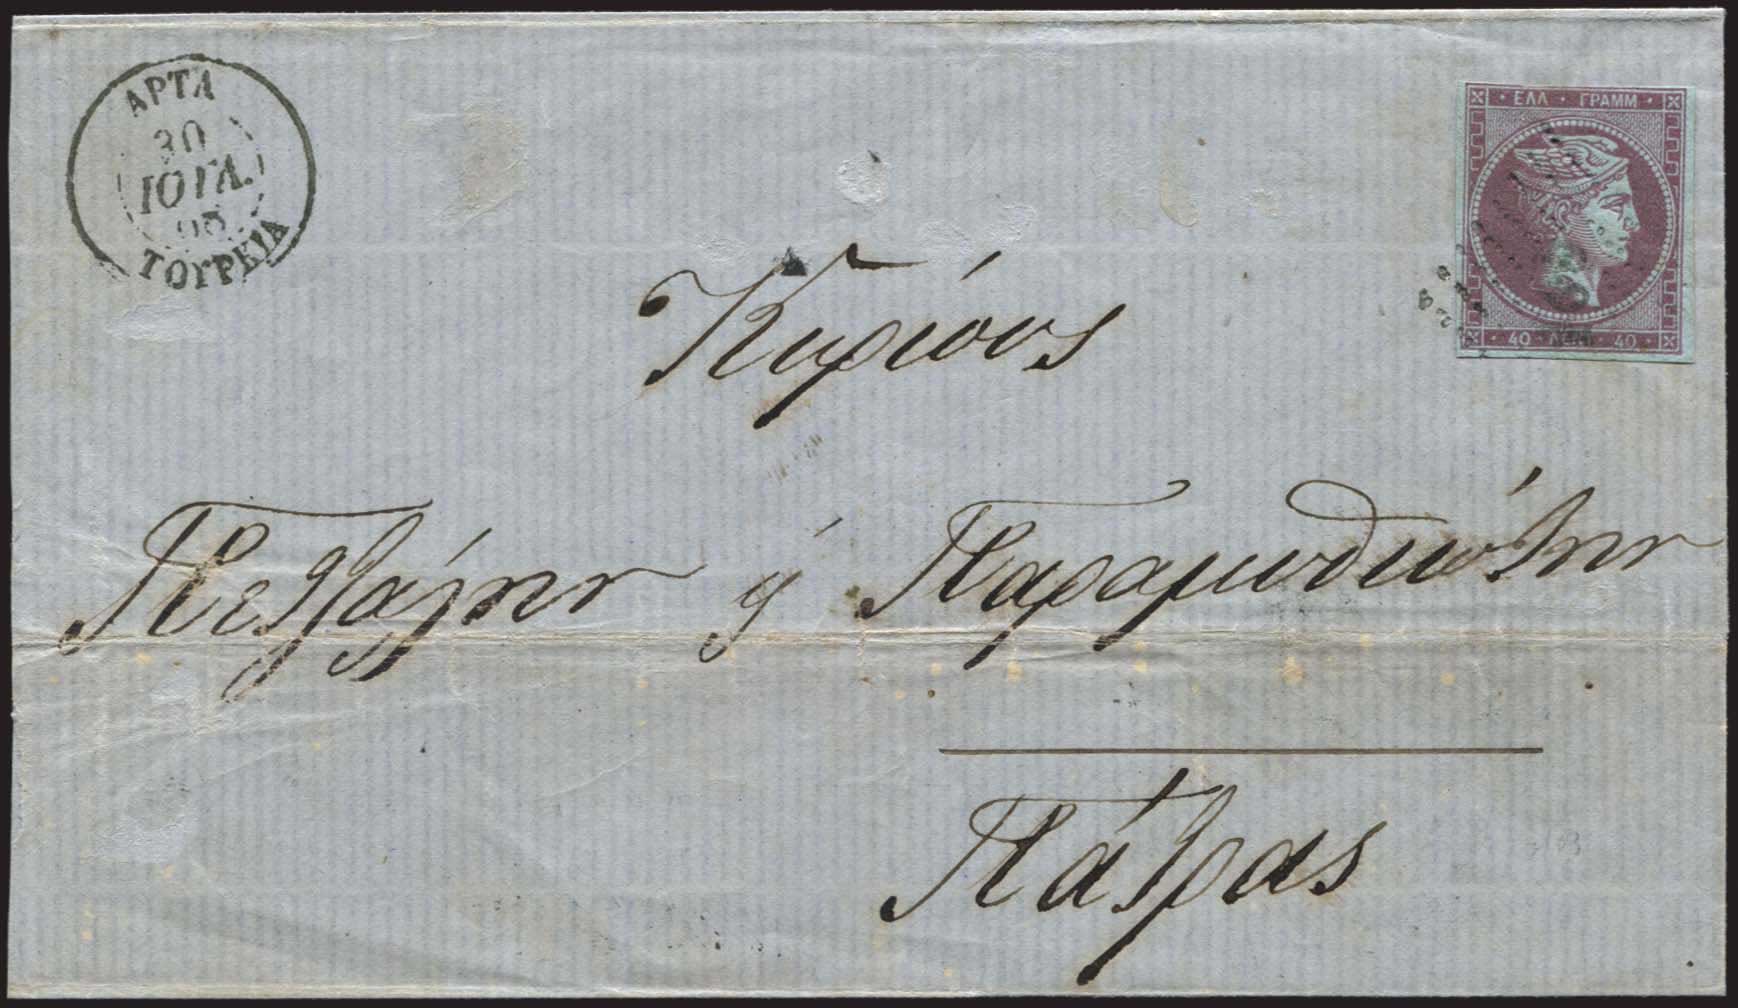 ΑΡΤΑ
30
ΙΟΥΛ.
ΤΟΥΡΚΙΑ
ΕΛΛ · ΓΡΑΜΜ
40 · ΛΕΠ · 40
Κυρίους
Πετζάλην ή Παραμυθιώτην
Πάτρας